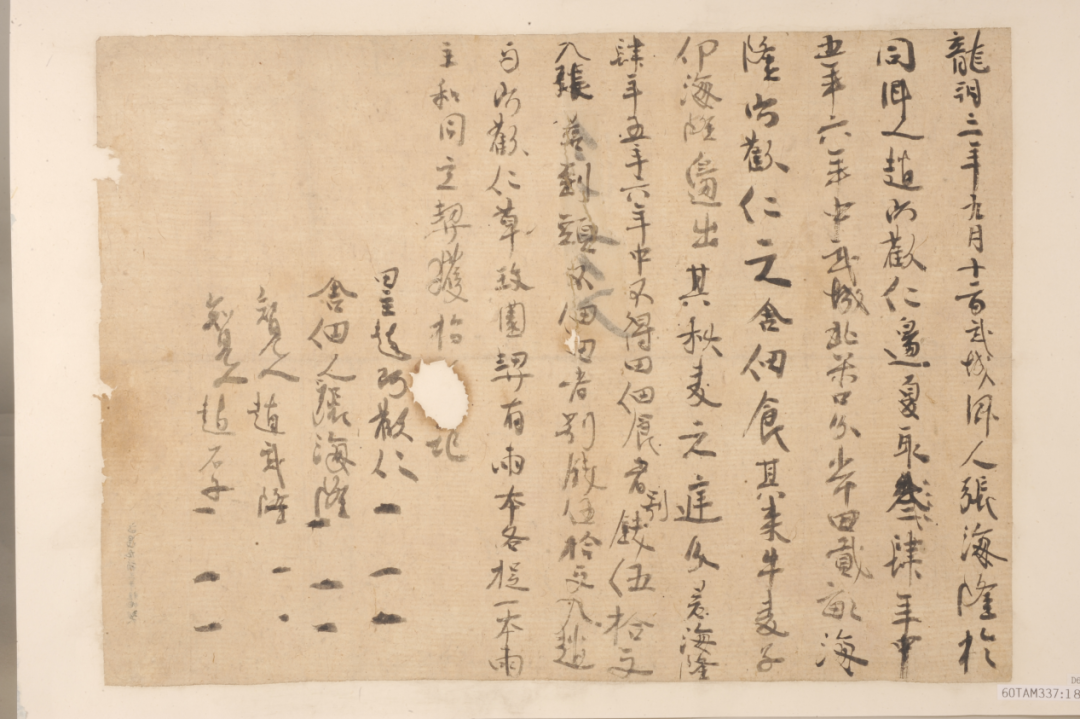 龍朔三年九月十二日武城鄉人張海隆於
同鄉人趙阿歡仁邊夏取叁肆年中
五年六年中武城北渠口分常田貳畝海
隆阿歡仁二人舍佃食其耒牛麥子
仰海隆邊出其秋麥二人庭分若海隆
肆年五年六年中不得田佃食者別錢伍拾文
入張若到頭不佃田者別錢伍拾文入趙
与阿歡仁草玖圍契有兩本各捉一本兩
主和同立契獲指記
田主趙阿歡仁
舍佃人張海隆
知見人趙武隆
知見人趙石子
60TAM337:18